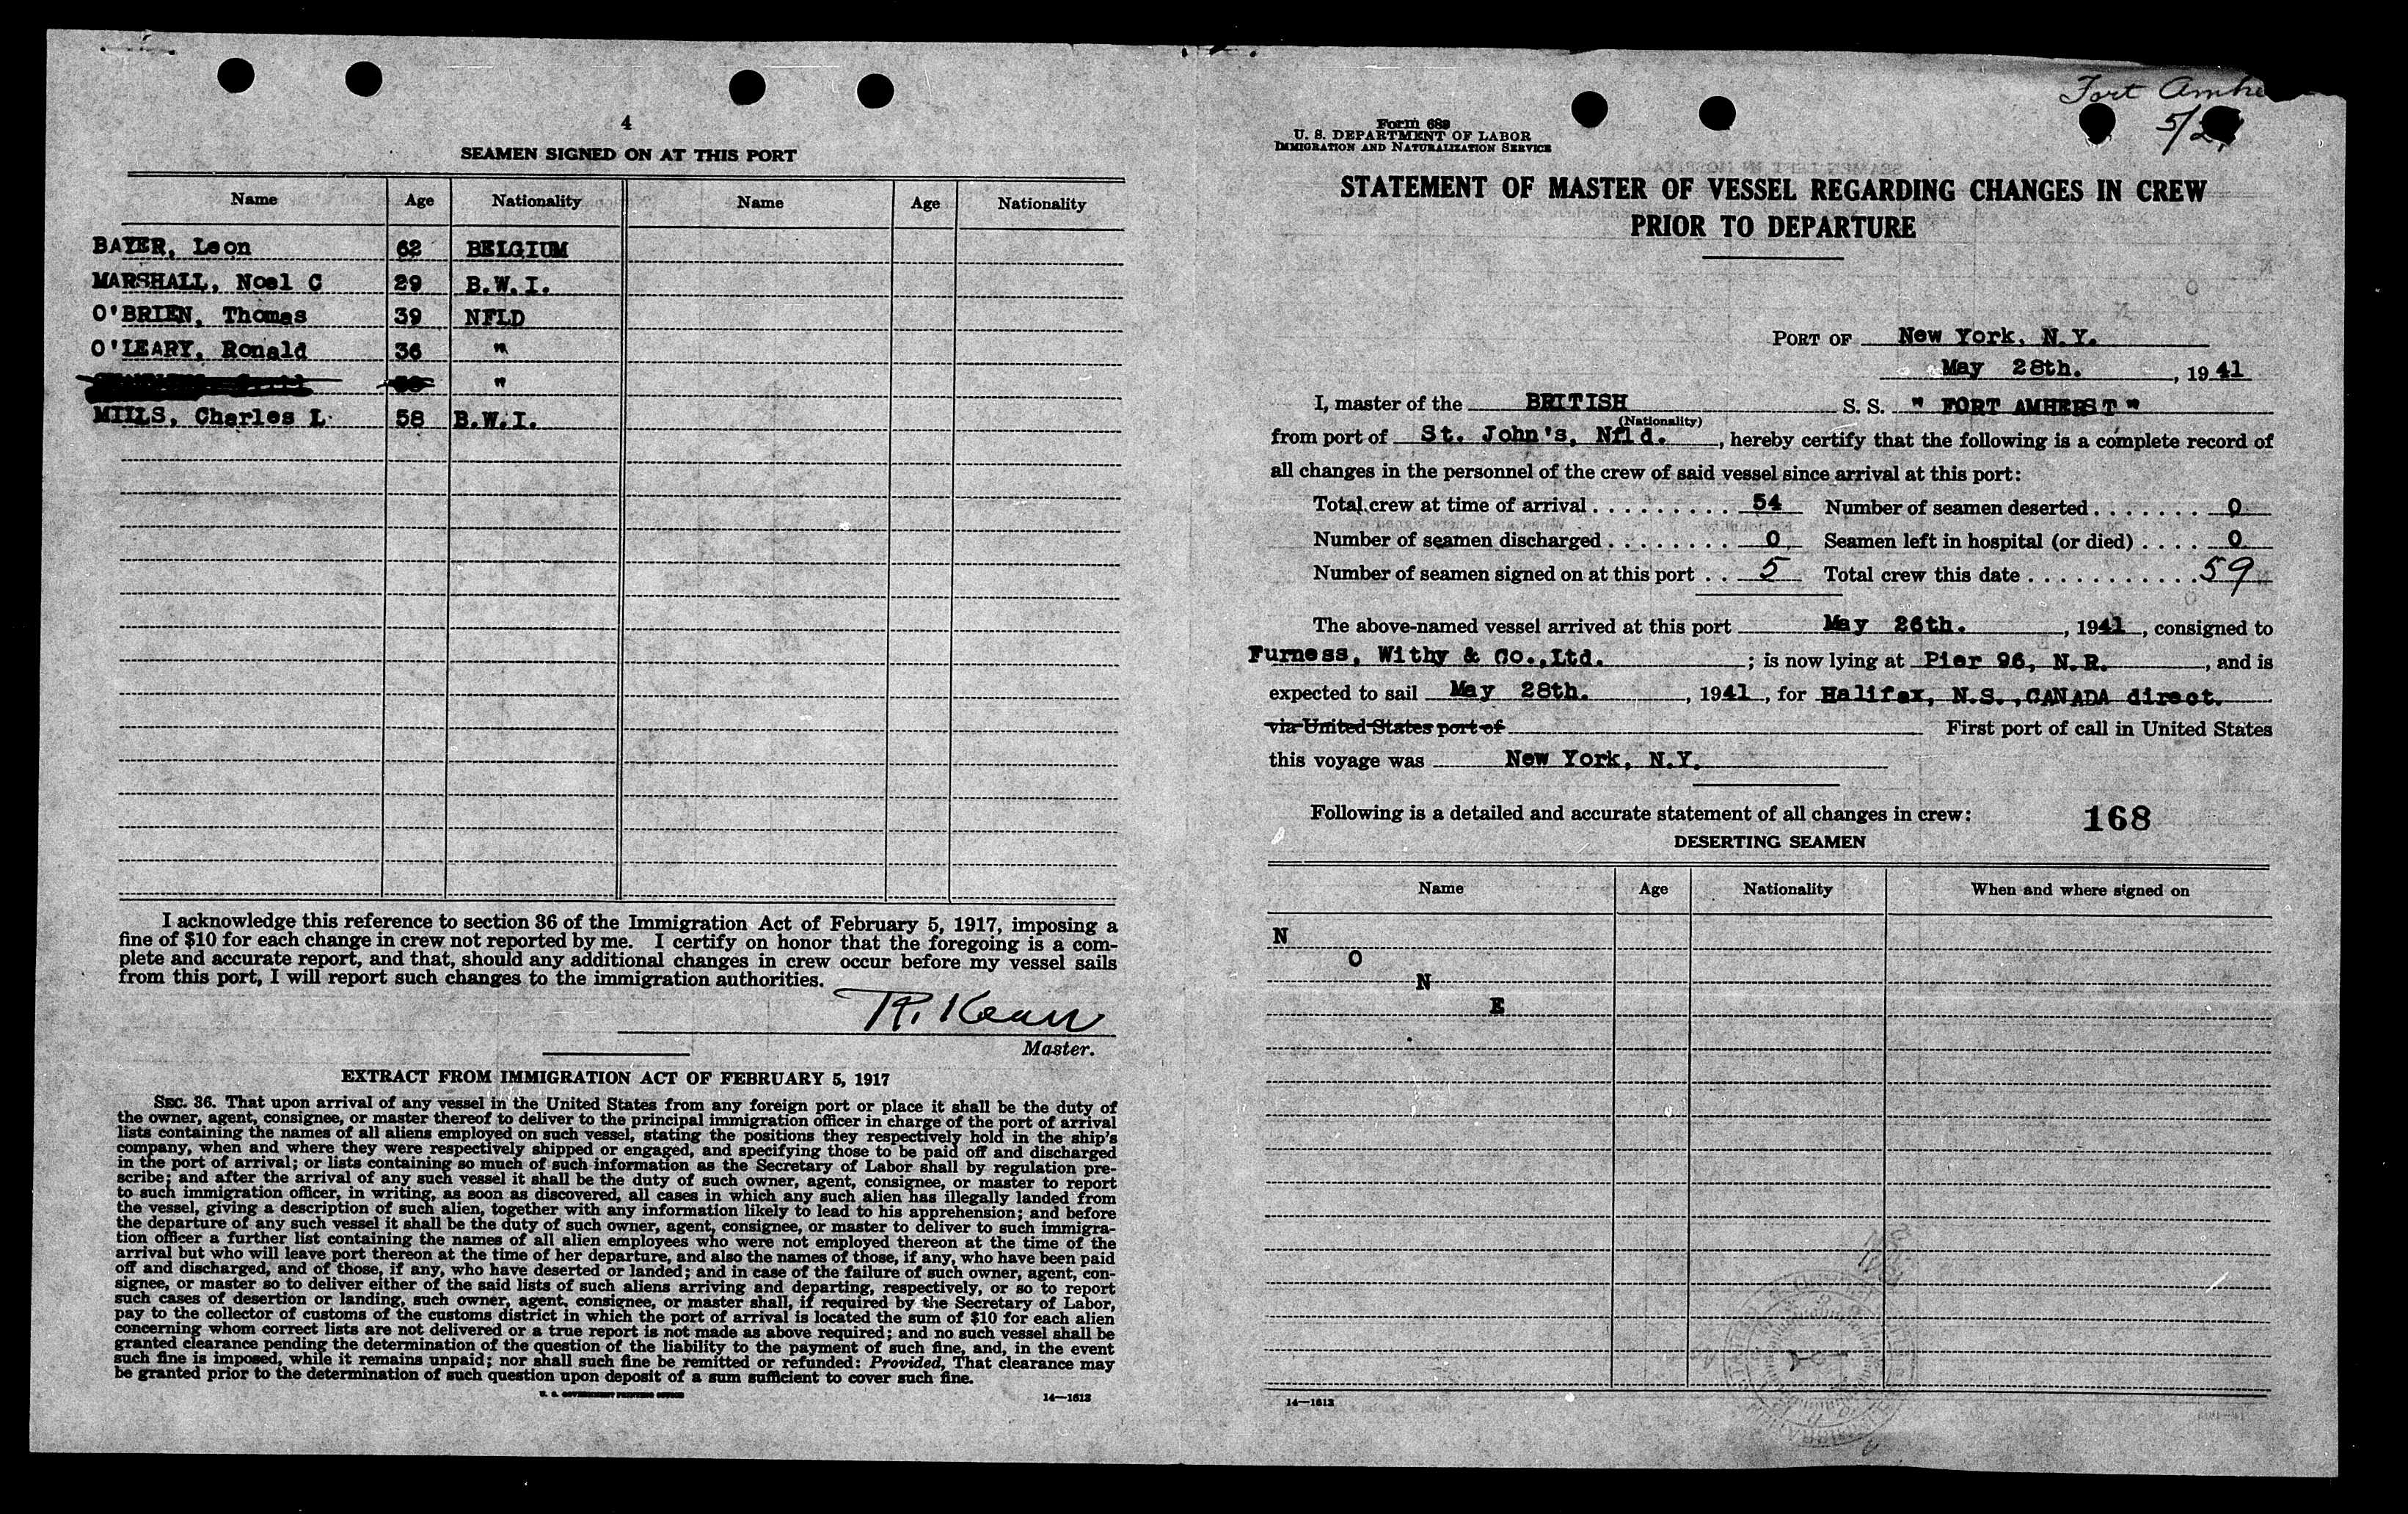 4
SEAMEN SIGNED ON AT THIS PORT
Name Age Nationality Name Age Nationality
BAYER, Leon 62 BELGIUM
MARSHALL, Noel C 29 B.W.I.
O'BRIEN, Thomas 39 NFLD
O'LEARY, Ronald 36 "
"
MILLS, Charles L 58 B.W.I.
I acknowledge this reference to section 36 of the Immigration Act of February 5, 1917, imposing a
fine of $10 for each change in crew not reported by me. I certify on honor that the foregoing is a com-
plete and accurate report, and that, should any additional changes in crew occur before my vessel sails
from this port, I will report such changes to the immigration authorities.
R. Kean
Master.
EXTRACT FROM IMMIGRATION ACT OF FEBRUARY 5, 1917
SEC. 36. That upon arrival of any vessel in the United States from any foreign port or place it shall be the duty of
the owner, agent, consignee, or master thereof to deliver to the principal immigration officer in charge of the port of arrival
lists containing the names of all aliens employed on such vessel, stating the positions they respectively hold in the ship's
company, when and where they were respectively shipped or engaged, and specifying those to be paid off and discharged
in the port of arrival; or lists containing so much of such information as the Secretary of Labor shall by regulation pre-
scribe; and after the arrival of any such vessel it shall be the duty of such owner, agent, consignee, or master to report
to such immigration officer, in writing, as soon as discovered, all cases in which any such alien has illegally landed from
the vessel, giving a description of such alien, together with any information likely to lead to his apprehension; and before
the departure of any such vessel it shall be the duty of such owner, agent, consignee, or master to deliver to such immigra-
tion officer a further list containing the names of all alien employees who were not employed thereon at the time of the
arrival but who will leave port thereon at the time of her departure, and also the names of those, if any, who have been paid
off and discharged, and of those, if any, who have deserted or landed; and in case of the failure of such owner, agent, con-
signee, or master so to deliver either of the said lists of such aliens arriving and departing, respectively, or so to report
such cases of desertion or landing, such owner, agent, consignee, or master shall, if required by the Secretary of Labor,
pay to the collector of customs of the customs district in which the port of arrival is located the sum of $10 for each alien
concerning whom correct lists are not delivered or a true report is not made as above required; and no such vessel shall be
granted clearance pending the determination of the question of the liability to the payment of such fine, and, in the event
such fine is imposed, while it remains unpaid; nor shall such fine be remitted or refunded: Provided, That clearance may
be granted prior to the determination of such question upon deposit of a sum sufficient to cover such fine.
U. S. GOVERNMENT PRINTING OFFICE 14—1613
Fort Amhe
5/2
Form 689
U. S. DEPARTMENT OF LABOR
IMMIGRATION AND NATURALIZATION SERVICE
STATEMENT OF MASTER OF VESSEL REGARDING CHANGES IN CREW
PRIOR TO DEPARTURE
PORT OF New York, N.Y.
May 28th. , 1941
I, master of the BRITISH S. S. " FORT AMHERST "
(Nationality)
from port of St. John's, Nfld. , hereby certify that the following is a complete record of
all changes in the personnel of the crew of said vessel since arrival at this port:
Total crew at time of arrival . . . . . . . . . 54 Number of seamen deserted . . . . . . . 0
Number of seamen discharged . . . . . . . . 0 Seamen left in hospital (or died) . . . . 0
Number of seamen signed on at this port . . 5 Total crew this date . . . . . . . . . . . . 59
The above-named vessel arrived at this port May 26th. , 1941 , consigned to
Furness, Withy & Co.,Ltd. ; is now lying at Pier 96, N.R. , and is
expected to sail May 28th. , 1941 , for Halifax, N.S.,CANADA direct.
via United States port of First port of call in United States
this voyage was New York, N.Y.
Following is a detailed and accurate statement of all changes in crew: 168
DESERTING SEAMEN
Name Age Nationality When and where signed on
N
O
N
E
14—1613